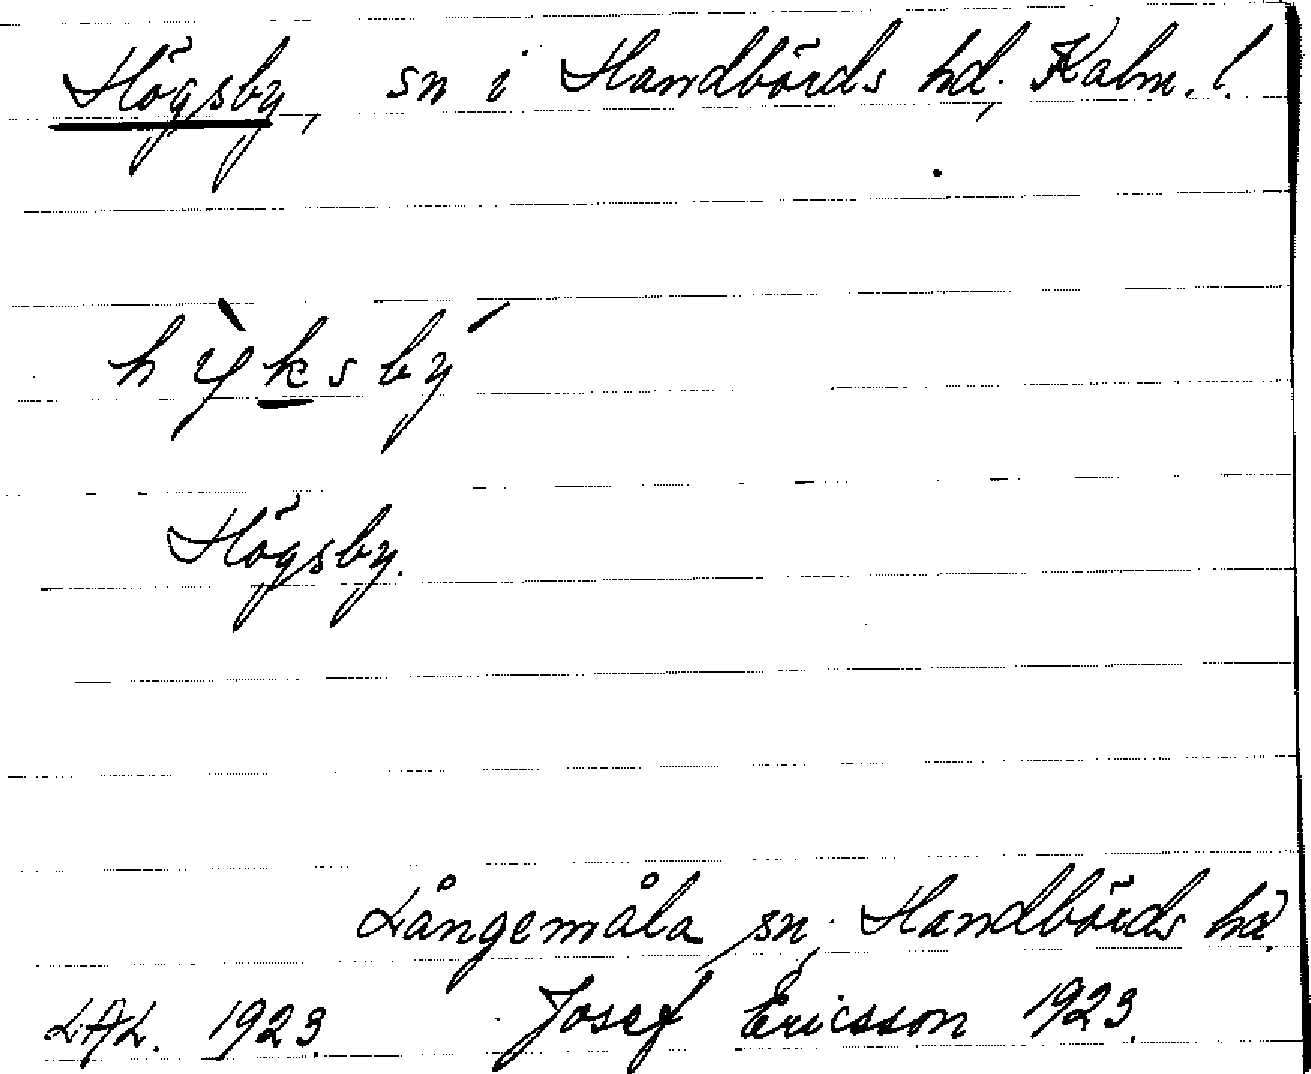 Högsby, sn i Handbörds hd, Kalm. l.
hỳksbý
Högsby.
Långemåla sn, Handbörds hd.
LAL. 1923. Josef Ericsson 1923.